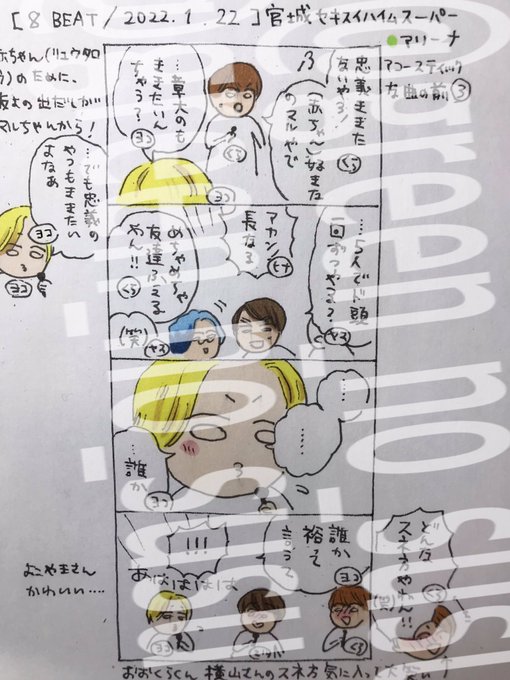 [8 BEAT / 2022.1.22]宮城セキスイハイムスーパー
アリーナ
アコースティック
な曲の前③
赤ちゃん(リュウタロ
のために、
の出だしが
マルちゃんから!
忠義ききた
ないやろ!
くら
(あちゃ〜)好きた
のマルやで
くら
…章大のも
ききたいん
ちゃう?
ヨコ
ヨコ
…でも忠義の
やつもききたい
よなあ
ヨコ
ヨコ
…5人でド頭
一回ずつやってる?
ヤス
ヤス
アカン!
長なる
ヒナ
めちゃめちゃ
友達ふえる
やん!!
くら
(笑)
……
……
…誰か
ヨコ
どんな
スネ方やねん!!
くら
(笑)
誰か
裕って
言うて
ヨコ
!!!
あははははは
ヨコ
くら
よこやまさん
かわいい….
おおくらくん 横山さんのスネ方気に入って大笑い
green_no_